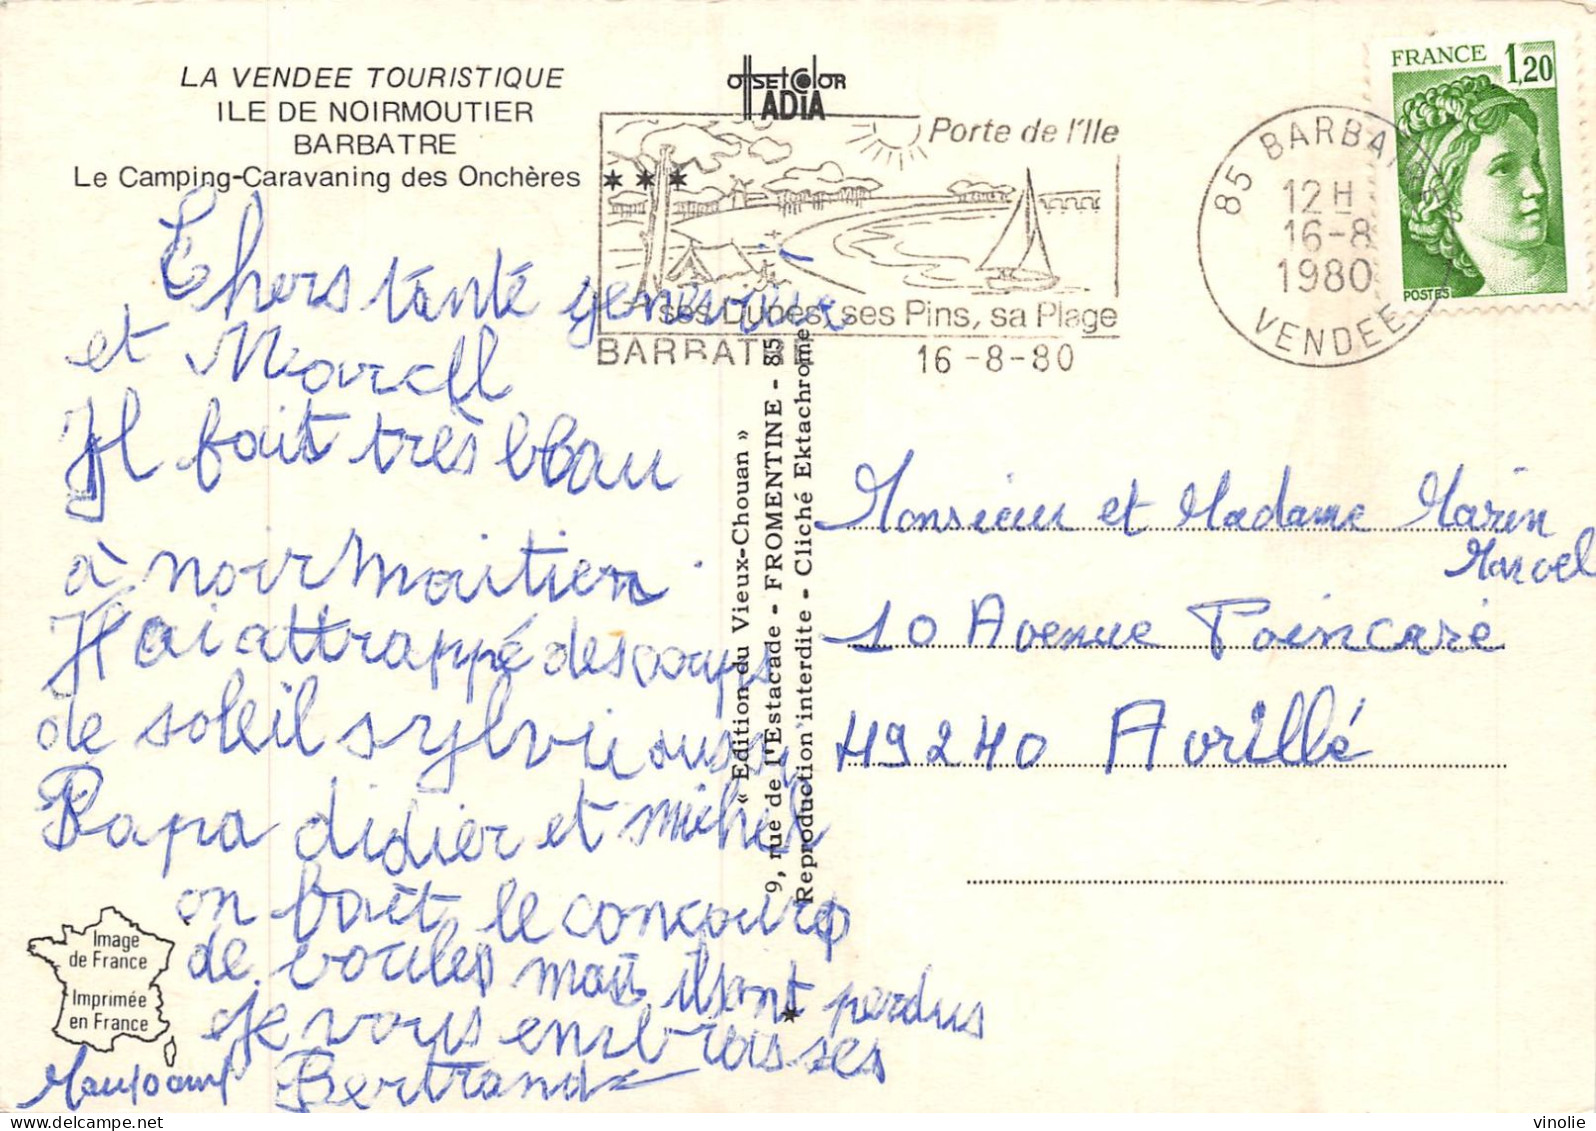 LA VENDEE TOURISTIQUE
ILE DE NOIRMOUTIER
BARBATRE
Le Camping-Caravaning des Onchères
offsetcolor
ADIA
Porte de l'Ile
ses Dunes, ses Pins, sa Plage
BARBATRE 16-8-80
85 BARBATRE
12 H
16-8
1980
VENDEE
FRANCE 1,20
POSTES
Chers tante genevieve
et Marcell
Il fait très beau
à noirmoitier
J'ai attrappé des coups
de soleil sylvie aussi
Papa didier et michel
on fait le concours
de boules mais il sont perdus
Je vous embrasses
Bertrand
« Edition du Vieux-Chouan »
9, rue de l'Estacade - FROMENTINE - 85
Reproduction interdite - Cliché Ektachrome
Monsieur et Madame Marin
Marcel
10 Avenue Poincaré
49240 Avrillé
Image
de France
Imprimée
en France
vinolie